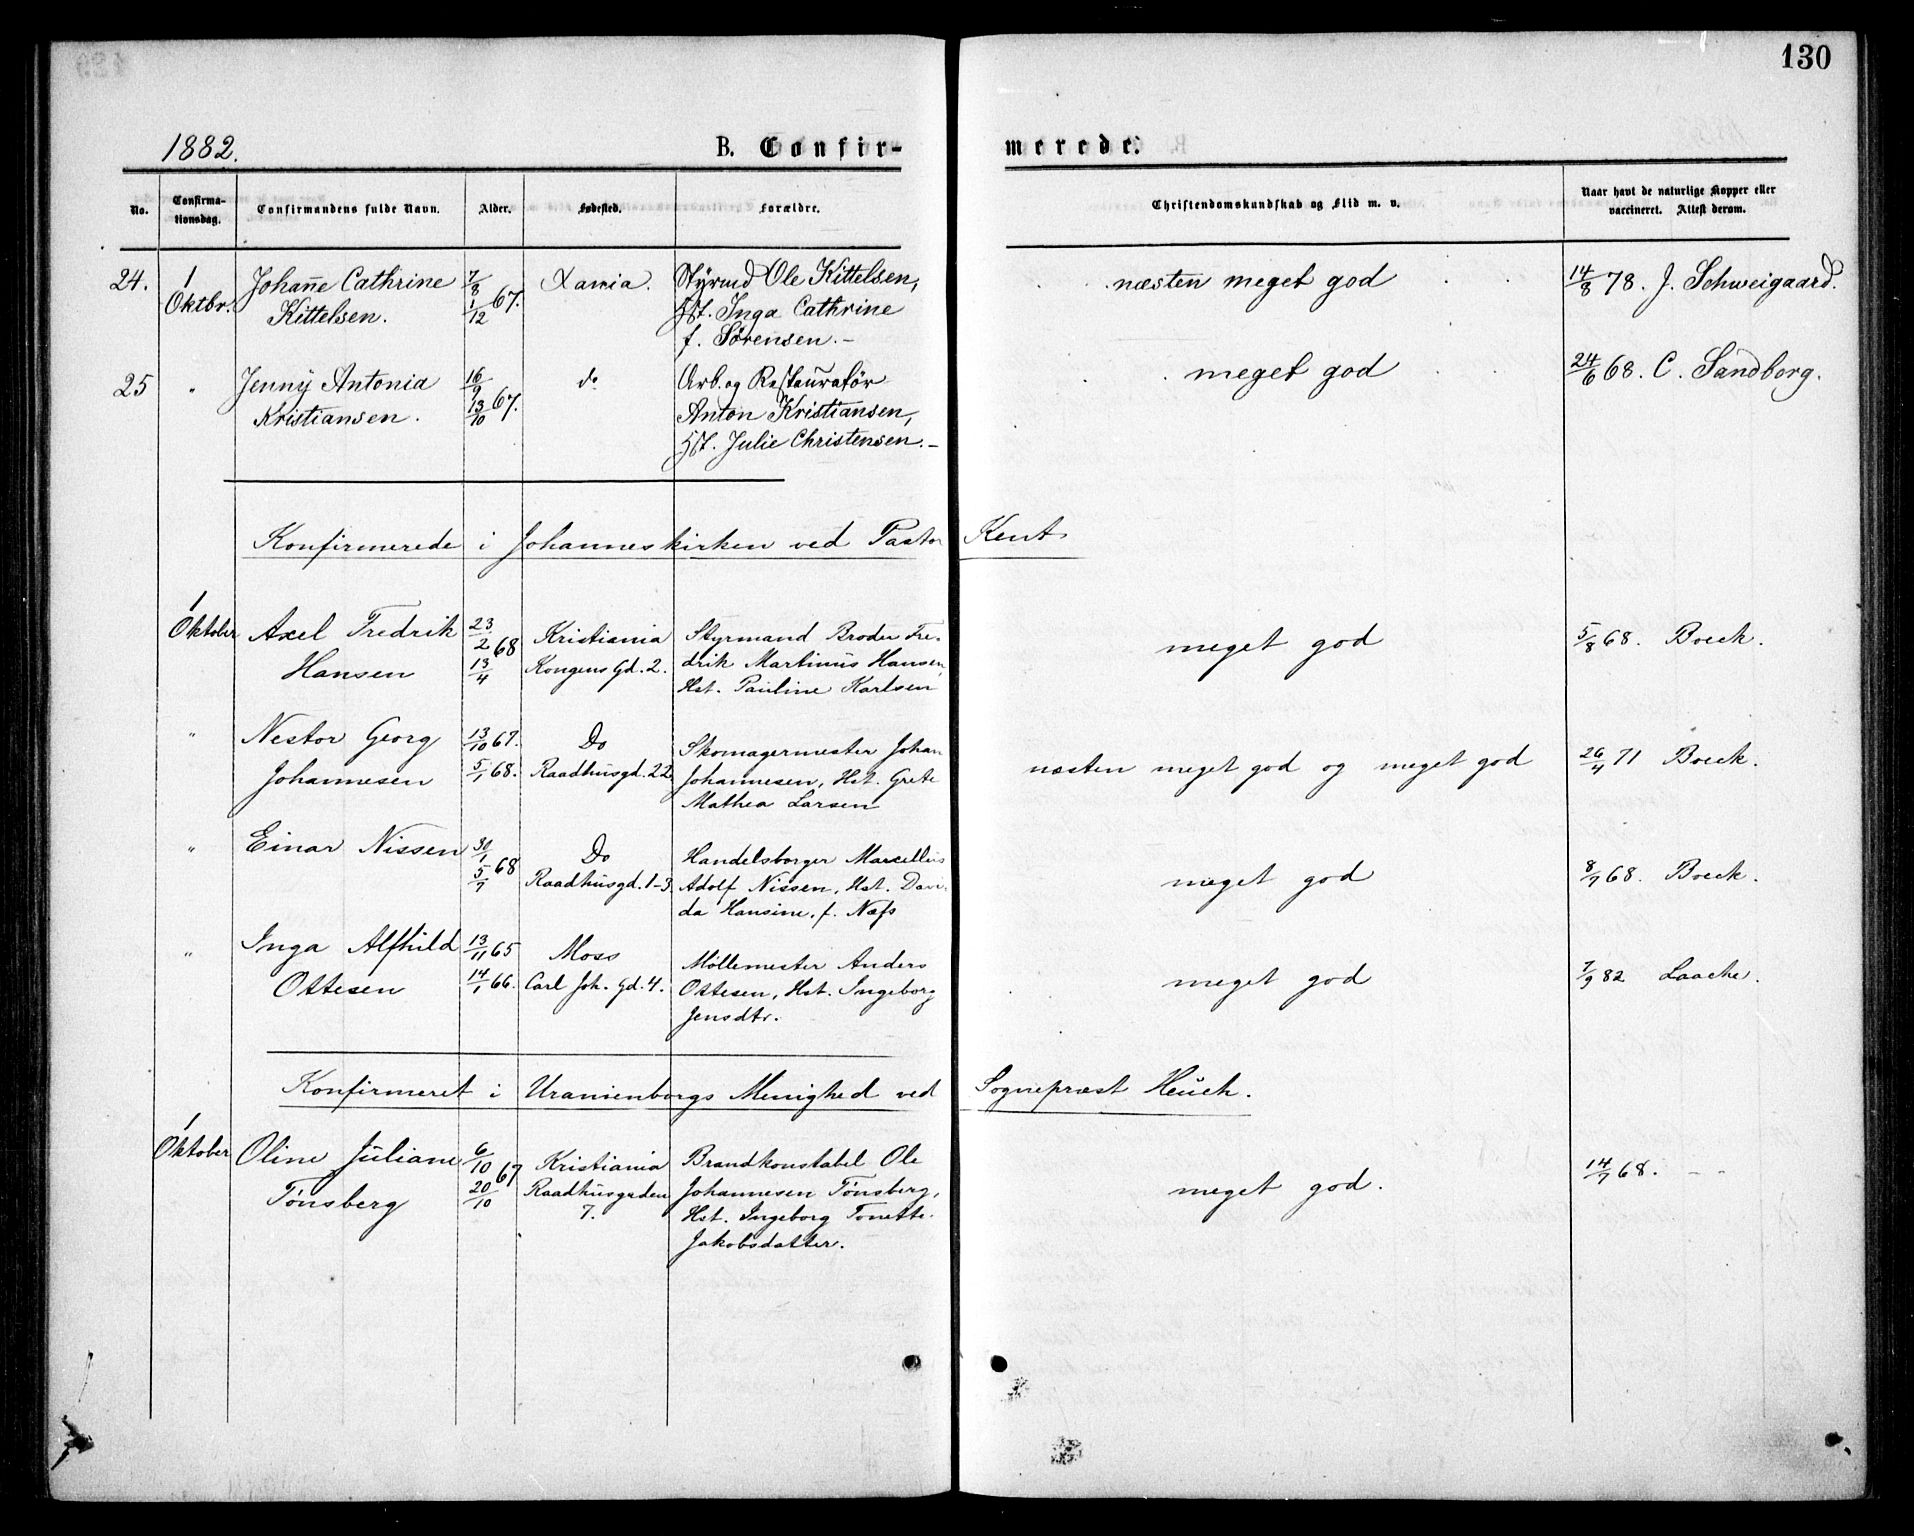 130
1882.
B. Confir-
merede.
No.
Confirma-
tionsdag.
Confirmandens fulde Navn.
Alder.
Fødested.
Forældre.
Christendomskundskab og Flid m. v.
Naar havt de naturlige Kopper eller
vaccineret. Attest derom.
24.
1
Oktbr.
Johan̄e Cathrine
Kittelsen.
7/8
1/12 67.
Xania.
Styrmd Ole Kittelsen,
Hst. Inga Cathrine
f. Sørensen.–
næsten meget god
14/8 78. J. Schweigaard.
25
"
Jenny Antonia
Kristiansen.
16/9
13/10 67.
do
Arb. og Restauratør
Anton Kristiansen,
Hst. Julie Christensen.–
meget god
24/6 68. C. Sandborg.
Konfirmerede i Johanneskirken ved Pastor Kent
1
Oktober
Axel Fredrik
Hansen
23/2
13/4 68
Kristiania
Kongens Gd. 2.
Styrmand Broder Fre-
drik Martinus Hansen,
Hst. Pauline Karlsen
meget god
5/8 68. Boeck.
"
Nestor Georg
Johannesen
13/10 67.
5/1 68.
Do
Raadhusgd. 22
Skomagermester Johan
Johannesen, Hst. Grete
Mathea Larsen
næsten meget god og meget god
26/4 71 Boeck.
"
Einar Nissen
30/1
5/7 68
Do
Raadhusgd. 1-3
Handelsborger Marcellius
Adolf Nissen, Hst. Davi-
da Hansine, f. Næfs
meget god
8/7 68. Boeck.
"
Inga Alfhild
Ottesen
13/11 65
14/1 66.
Moss
Carl Joh. Gd. 4.
Møllemester Anders
Ottesen, Hst. Ingeborg
Jensdtr.
meget god
7/9 82 Laache.
Konfirmeret i Uranienborgs Menighed ved Sognepræst Heuch.
1
Oktober
Oline Juliane
Tønsberg
6/10
20/10 67
Kristiania
Raadhusgaden
7.
Brandkonstabel Ole
Johannesen Tønsberg,
Hst. Ingeborg Tonette
Jakobsdatter.
meget god.
14/7 68. – –